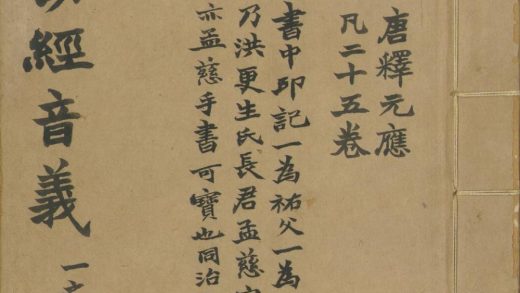 唐釋元應
凡二十五卷
書中印記一為祐父一為
乃洪更生氏長君孟慈
亦孟慈手書可寶也同治
經音義
一之